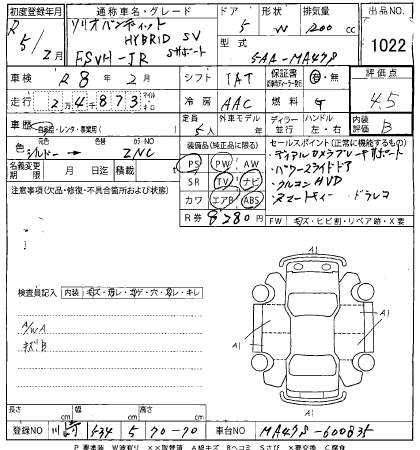 初度登録年月 通称車名・グレード ドア 形状 排気量 出品NO
R 5/2月 ソリオバンディット HYBRID SV 5 W 1200 cc 1022
FSVH-JR Sサポート 型式 5AA-MA47S
車検 R 8年 2月 シフト IAT 保証書 有・無 評価点
走行 2万4,873 マイル キロ 冷房 AAC 燃料 G 4.5
車歴 自家用・レンタ・事業用( ) 定員 5人 外車モデル 年 ディーラー 並行 ハンドル 左・右 内装評価 B
色 元色 シルバー → カラーNO ZNC
装備品(純正品に限る) セールスポイント(正常に機能するもの)
名義変更期限 月 日迄 積載
PS PW AW
SR TV ナビ
カワ エアB ABS
R券 8380
・デュアルカメラブレーキサポート
・パワースライドドア
・クルコン HUD
・スマートキー ・ドラレコ
注意事項(欠品・修復・不具合箇所および状態)
FW キズ・ヒビ割・リペア跡・X要
検査員記入 内装 キズ・汚レ・コゲ・穴・切レ・キレ
A/WA
キズB
A1
A1
A1
A1
長さ cm 幅 cm 高さ cm
登録NO 534 5 70-70 車台NO MA47S-600835
P 要塗装 W波有り ××取替済 A線キズ Bヘコミ Sさび ×要交換 C腐食